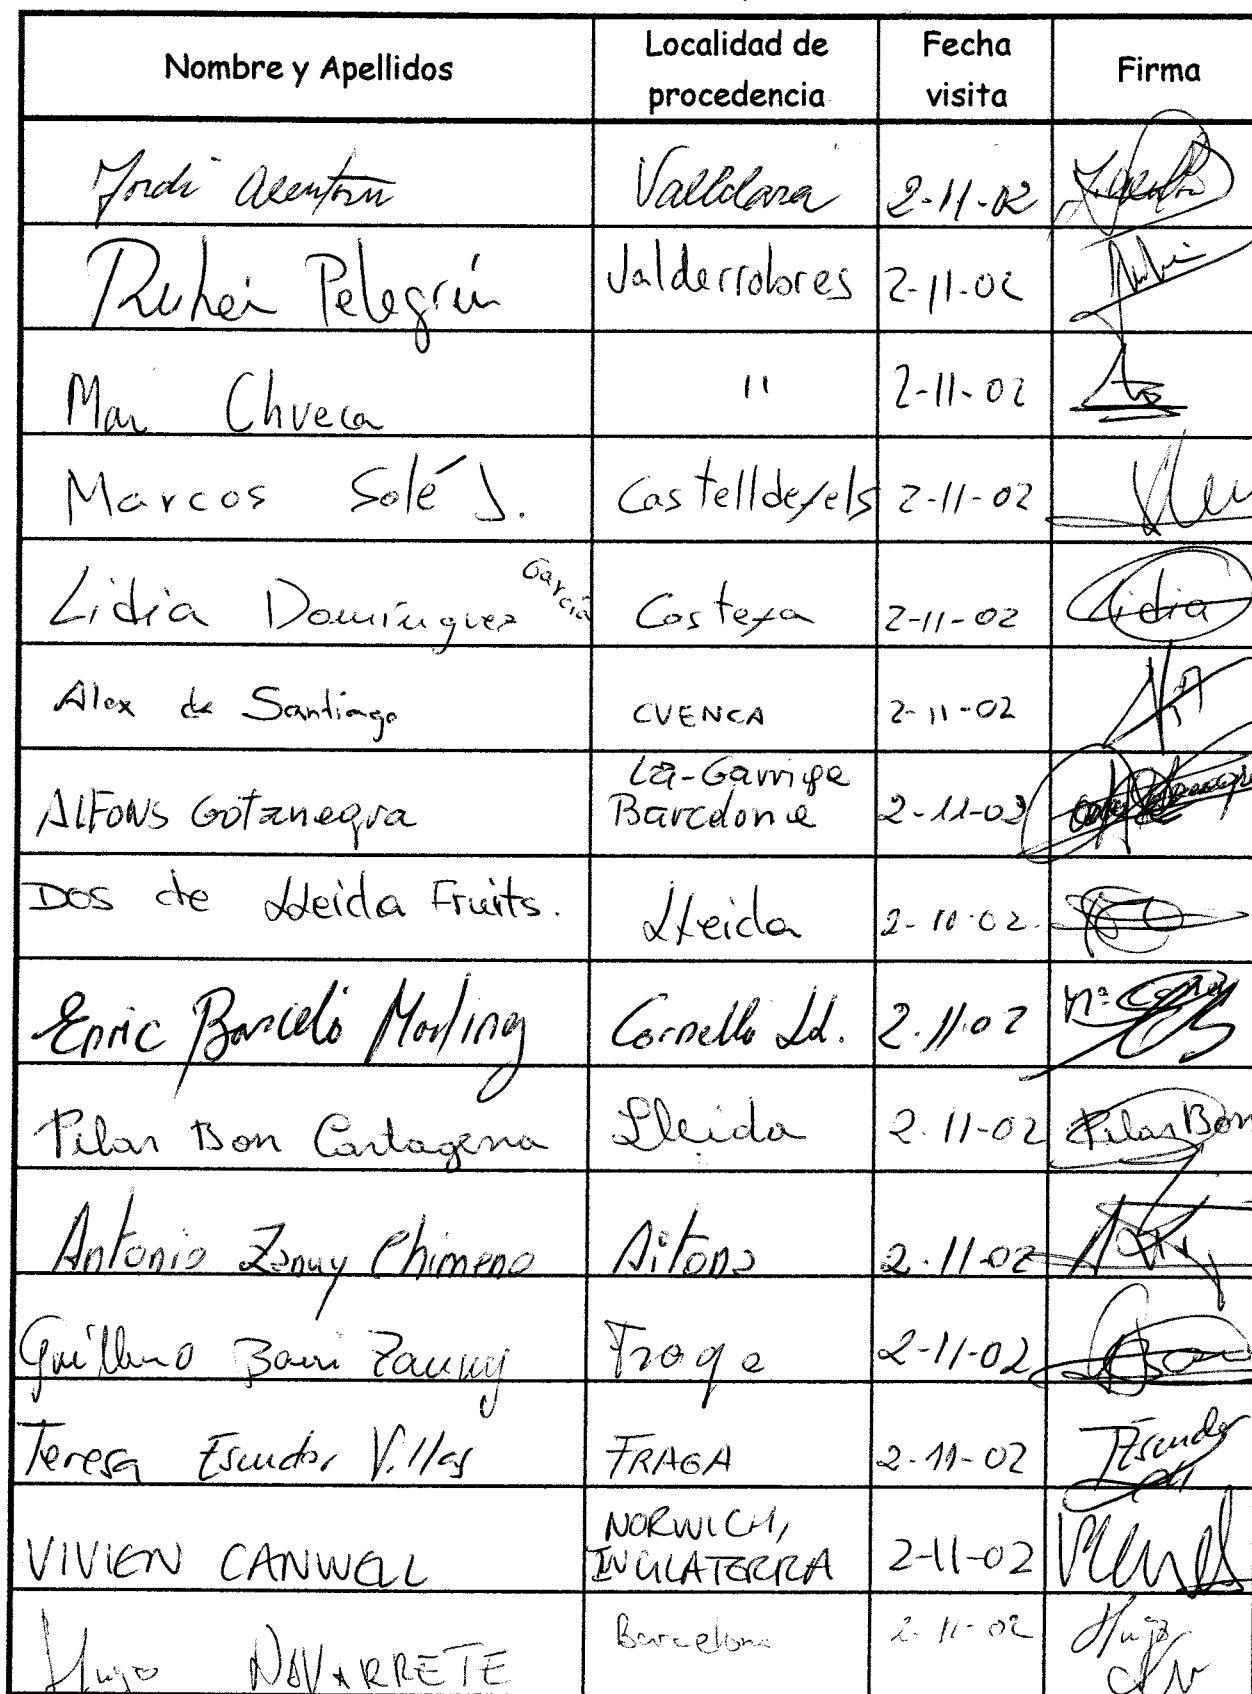 Nombre y Apellidos
Localidad de
procedencia
Fecha
visita
Firma
Jordi Valldlara 2-11-02
Pelegrín Valderrobres 2-11-02
Mar Chveca " 2-11-02
Marcos Solé J. Castelldefels 2-11-02
Lidia Domínguez García Castefa 2-11-02 Lidia
Alex de Santiago CUENCA 2-11-02
La-Garriga
ALFONS Gotanegra Barcelona 2-11-02
Dos de Lleida Fruits. Lleida 2-11-02.
Enric Barceló 2.11.02
Pilar Bon Cartagena Lleida 2.11-02 Pilar Bon
Antonio Zanuy Chimeno Aitona 2.11-02
Guillermo Zanuy Fraga 2-11-02
Teresa Escudor Villas FRAGA 2-11-02 TEscudor
NORWICH,
VIVIEN CANWELL INGLATERRA 2-11-02
Hugo NAVARRETE Barcelona 2-11-02 Hugo